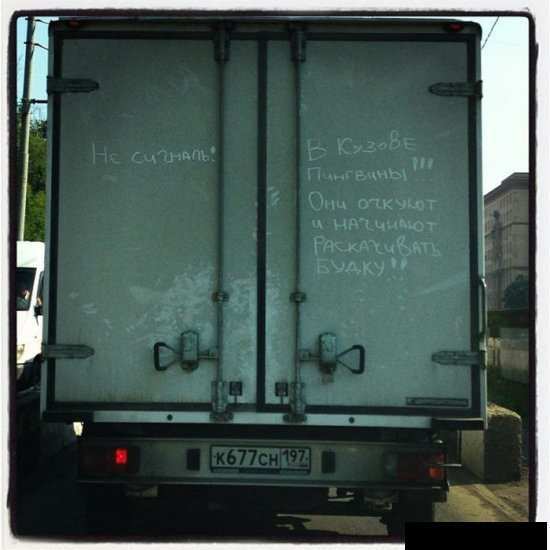 Не сигналь!
В Кузове
Пингвины!!!
Они очкуют
и начинают
раскачивать
будку!!
К677СН 197